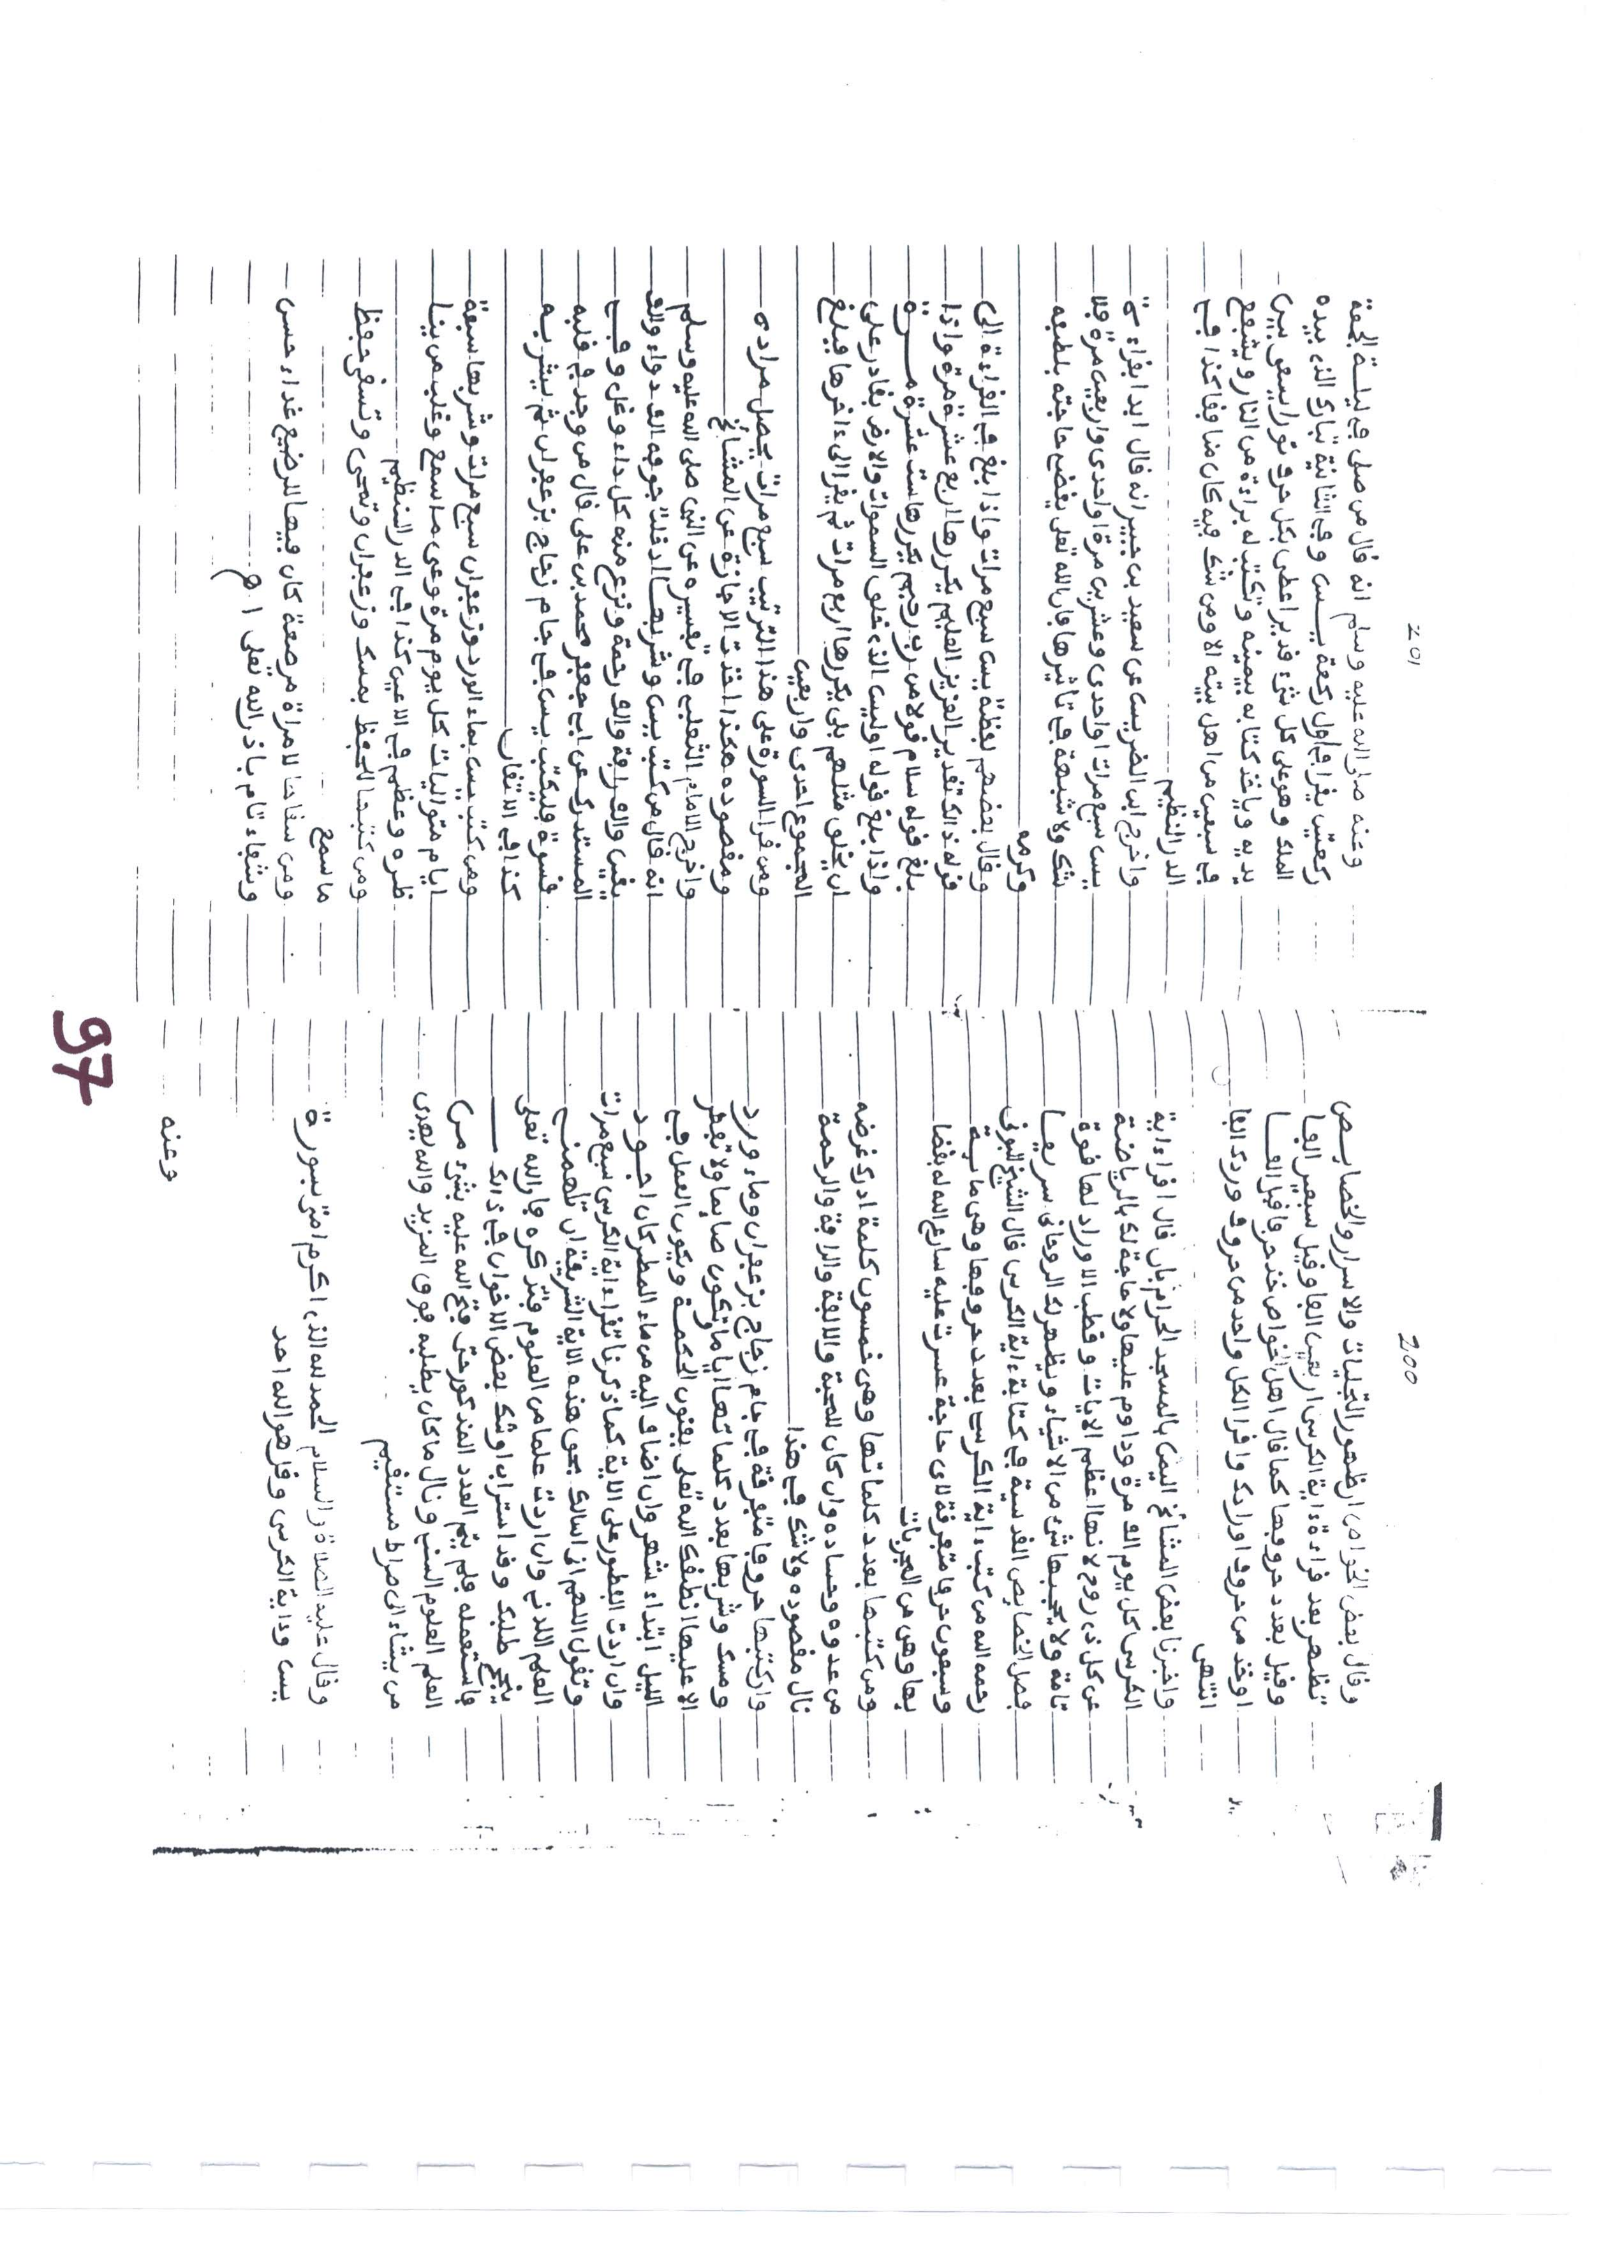 200
وقال بعض الخواص ان ظهور التجليات والاسرار والخصايص
تظهر بعد قراءة ءاية الكرسي اربعين الفا وقيل سبعين الفا
وقيل بعدد حروفها كما قال اهل الخواص خذ حرفا قل الفا
او خذ من حروف اورادك واقرا لكل واحد من حروف وردك الفا
انتهى
واخبرنا بعض المشائخ اليمن بالمسجد الحرام بان قال اقراء اية
الكرسي كل يوم الف مرة وداوم عليها ولا حاجة لك بالرياضة
عن كل ذي روح لانها اعظم الايات وقطب الاوراد لها قوة
تامة ولا يحجبها شيء من الاشياء ويظهر لك الروحاني سريعا
فصل الخصايص القدسية في كتابة ءاية الكرسي قال الشيخ البوني
رحمه الله من كتب ءاية الكرسي بعدد حروفها وهي ماية
وسبعون حرفا متفرقة لاي حاجة عسرت عليه سارع الله له بقضا
يها وهي من المجربات
ومن كتبها بعدد كلماتها وهي خمسون كلمة ادرك غرضه
من عدوه وحساده وان كان للمحبة والالفة والرافة والرحمة
نال مقصوده ولا شك في هذا
وان كتبها حروفا متفرقة في جام زجاج بزعفران وماء ورد
ومسك وشربها بعدد كلماتها اياما وتكون صايما ولا تفطر
الا عليها انطقك الله تعلى بفنون الحكمة ويكون العمل في
الليل ابتداء شهر وان اضاف اليه من ماء المطر كان اجود
وان اردت الفطور على الاية كما ذكرنا تقراء اية الكرسي سبع مرات
وتقول اللهم اني اسالك بحق هذه الاية الشريفة ان تلهمني
العلم اللدني وان اردت علما من العلوم فتذكره فان الله تعلى
ينجح طلبك وقد استراب اوشك بعض الاخوان في ذالك
فاستعمله فلم يتم العدد المذكور حتى فتح الله عليه بشيء من
العلم العلوم السني ونال ما كان يطلبه فوق المزيد والله يهدي
من يشاء الى صراط مستقيم
وقال عليه الصلاة والسلام الحمد لله الذي اكرم امتي بسورة
يس وداية الكرسي وقل هو الله احد
وعنه
201
وعنه صلى الله عليه وسلم انه قال من صلى في ليلة الجمعة
ركعتين يقرا في اول ركعة يس وفي الثانية تبارك الذي بيده
الملك وهو على كل شيء قدير اعطى بكل حرف نورا يسعى بين
يديه وياخذ كتابه بيمينه وتكتب له براءة من النار ويشفع
في سبعين من اهل بيته الا ومن شك فيه كان منافقا كذا في
الدر النظيم
واخرج ابن الضريس عن سعيد بن جبير انه قال ابدا بقراءة
يس سبع مرات او احدى وعشرين مرة او احدى واربعين مرة فلا
شك ولا شبهة في تاثيرها فان الله تعلى يقضي حاجته بلطفه
وكرمه
وقال بعضهم لفظة يس سبع مرات واذا بلغ في القراءة الى
قوله ذالك تقدير العزيز العليم يكررها اربع عشرة مرة واذا
بلغ قوله سلام قولا من رب رحيم يكررها ست عشرة مرة
واذا بلغ قوله اوليس الذي خلق السموات والارض بقادر على
ان يخلق مثلهم بلى يكررها اربع مرات ثم يقرا الى ءاخرها فيبلغ
المجموع احدى واربعين
ومن قرا السورة على هذا الترتيب سبع مرات يحصل مراده
ومقصوده هكذا اخذت الاجازة عن المشائخ
واخرج الامام الثعلبي في تفسيره عن النبي صلى الله عليه وسلم
انه قال من كتب يس وشربها ادخلت جوفه الف دواء والف
يقين والف رافة والف رحمة ونزع منه كل داء وغل وفي
المستدرك عن ابي جعفر محمد بن علي قال من وجد في قلبه
قسوة فليكتب يس في جام زجاج بزعفران ثم يشربه
كذا في الاتقان
ومن كتب يس بماء الورد وزعفران سبع مرات وشربها سبعة
ايام متواليات كل يوم مرة وعى ما سمع وغلب من ينا
ظره وعظم في الاعين كذا في الدر النظيم
ومن كتبها للحفظ بمسك وزعفران وتمحى وتسقى حفظ
ما سمع
ومن سقاها لامراة مرضعة كان فيها للرضيع غذاء حسن
وشفاء تام باذن الله تعلى اه
97